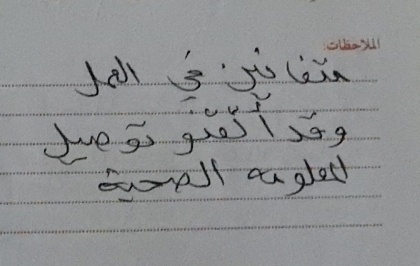 الملاحظات:
متفانين في العمل
وقد أتقنو توصيل
المعلومة الصحية